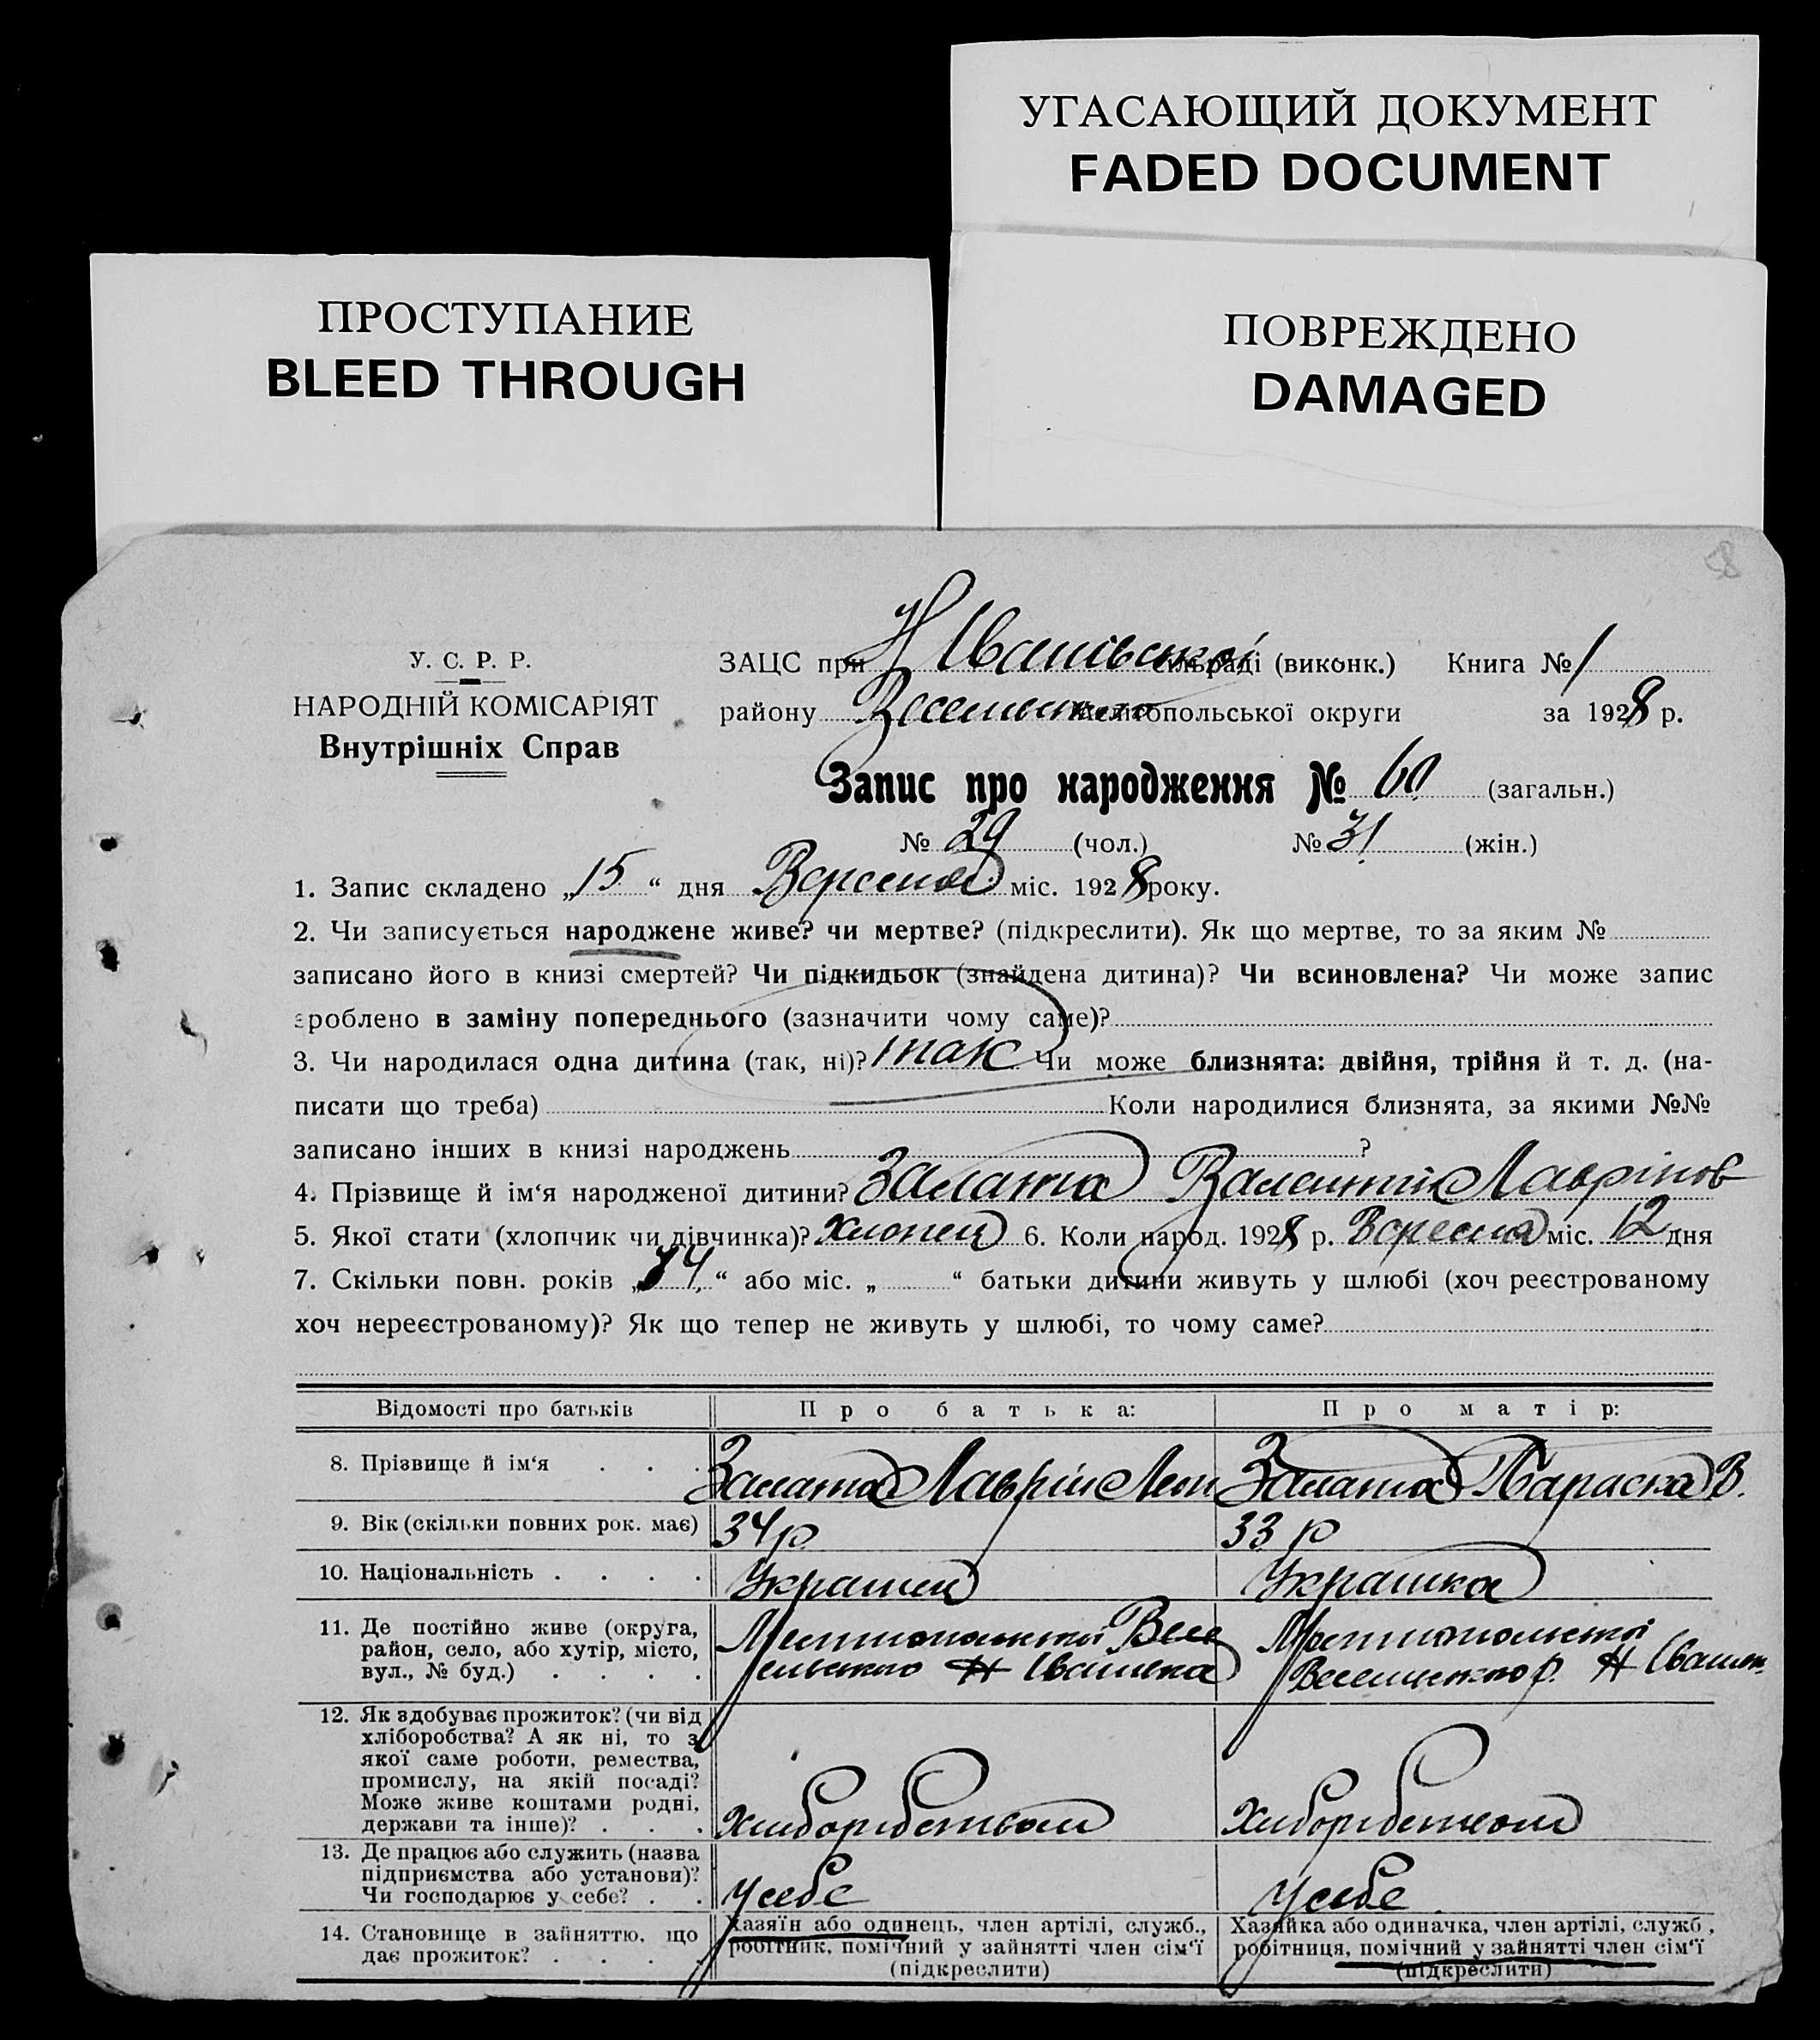 УГАСАЮЩИЙ ДОКУМЕНТ
FADED DOCUMENT
ПРОСТУПАНИЕ
BLEED THROUGH
ПОВРЕЖДЕНО
DAMAGED
8
У. С. Р. Р.
НАРОДНІЙ КОМІСАРІЯТ
Внутрішніх Справ
ЗАЦС при Н Іванівської сільраді (виконк.) Книга № 1
району Веселенького Мелітопольської округи за 1928 р.
Запис про народження № 60 (загальн.)
№ 29 (чол.) № 31 (жін.)
1. Запис складено „15“ дня Вересня міс. 1928 року.
2. Чи записується народжене живе? чи мертве? (підкреслити). Як що мертве, то за яким №
записано його в книзі смертей? Чи підкидьок (знайдена дитина)? Чи всиновлена? Чи може запис
зроблено в заміну попереднього (зазначити чому саме)?
3. Чи народилася одна дитина (так, ні)? так Чи може близнята: двійня, трійня й т. д. (на-
писати що треба) Коли народилися близнята, за якими №№
записано інших в книзі народжень ?
4. Прізвище й ім‘я народженої дитини? Залата Валентін Лаврінов
5. Якої стати (хлопчик чи дівчинка)? хлопец 6. Коли народ. 1928 р. Вересня міс. 12 дня
7. Скільки повн. років „14“ або міс. „ “ батьки дитини живуть у шлюбі (хоч реєстрованому
хоч нереєстрованому)? Як що тепер не живуть у шлюбі, то чому саме?
Відомості про батьків Про батька: Про матір:
8. Прізвище й ім‘я . . . Залата Лаврін Леон Залата Параска В.
9. Вік (скільки повних рок. має) 34 р 33 р
10. Національність . . . . Украинец Украинка
11. Де постійно живе (округа,
район, село, або хутір, місто,
вул., № буд.) . . . .
Мелітопольської Весе
ельського Н Іванівка
Мелітопольської
Веселинського р. Н Іванів
12. Як здобуває прожиток? (чи від
хліборобства? А як ні, то з
якої саме роботи, ремества,
промислу, на якій посаді?
Може живе коштами родні,
держави та інше)? . . .
Хліборобством Хліборобством
13. Де працює або служить (назва
підприємства або установи)?
Чи господарює у себе? . .
У себе У себе
14. Становище в зайняттю, що
дає прожиток? . . . .
Хазяїн або одинець, член артілі, служб.,
робітник, помічний у зайнятті член сім‘ї
(підкреслити)
Хазяйка або одиначка, член артілі, служб.,
робітниця, помічний у зайнятті член сім‘ї
(підкреслити)